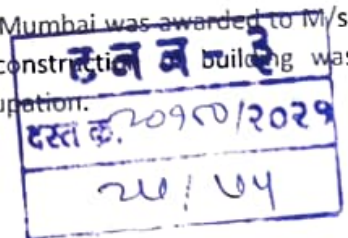 Mumbai was awarded to M/s
construction building was
upation.
ट न न - ३
दस्त क्र. २०१९०/२०२१
२५/७५